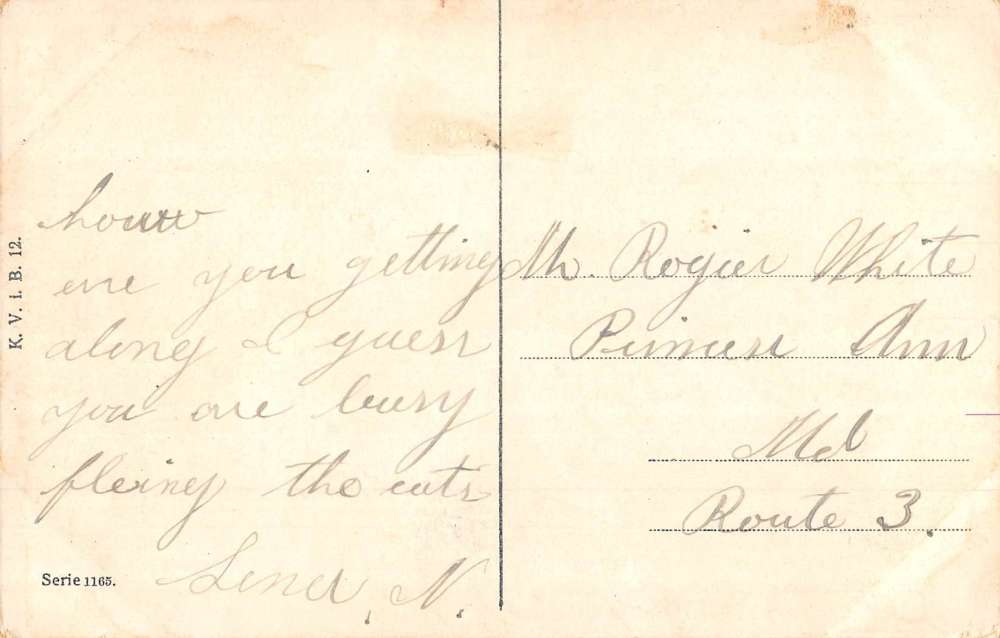 how
are you getting
along I guess
you are busy
fleing the cats
Lena, N.
Mr. Rogier White
Princess Ann
Md
Route 3.
K. V. i. B. 12.
Serie 1165.